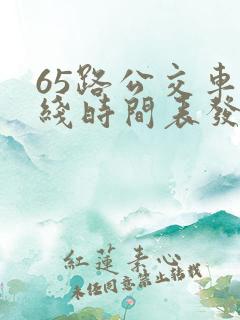 65路公交車
綫時間表發
紅蓮素心
未任同意禁止转载